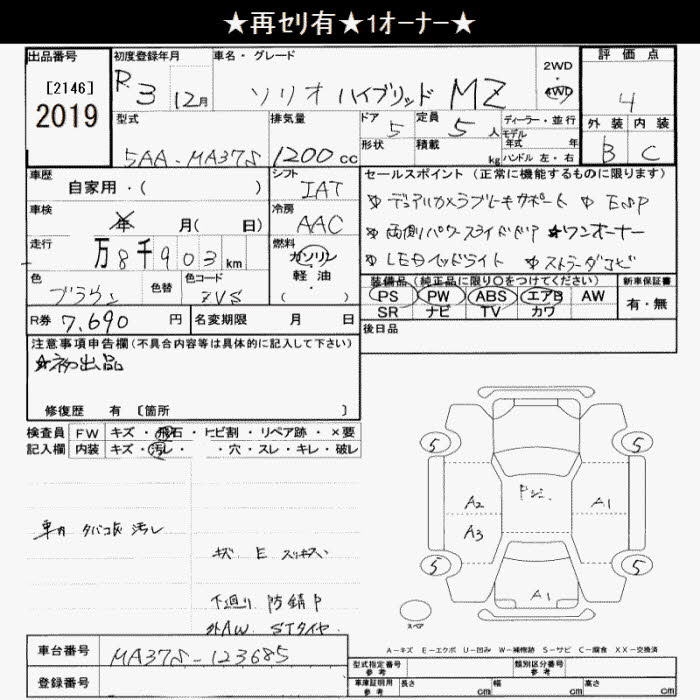 ★再セリ有★1オーナー★
出品番号 初度登録年月 車名・グレード 2WD・4WD 評価点
[2146] 2019 R3 12月 ソリオ ハイブリッド MZ 4
型式 排気量 ドア 5 定員 5人 ディーラー・並行 外装 内装
5AA-MA37S 1200cc 形状 積載 kg モデル年式 年 B C
ハンドル 左・右
車歴 自家用・( ) シフト IAT セールスポイント (正常に機能するものに限ります)
車検 年 月( 日) 冷房 AAC デュアルカメラブレーキサポート ESP
走行 万8千903km 燃料 ガソリン 両側パワースライドドア ワンオーナー
軽油・( ) LEDヘッドライト
色 ブラウン 色替 色コード ZVS 装備品 (純正品に限り○をつけてください) 新車保証書
PS PW ABS エアB AW 有・無
R券 7,690円 名変期限 月 日 SR ナビ TV カワ
注意事項申告欄(不具合内容等は具体的に記入して下さい) 後日品
☆初出品
修復歴 有 [箇所 ]
検査員 FW キズ・飛石・ヒビ割・リペア跡・×要
記入欄 内装 キズ・汚レ・ ・穴・スレ・キレ・破レ
5 5
A2 A1
A3
車内 タバコ灰 汚レ
キズ E スリキズ
5 5
下廻り 防錆P A1
外AW STタイヤ スペア
A-キズ E-エクボ U-凹み W-補修跡 S-サビ C-腐食 XX-交換済
車台番号 MA37S-123685 型式指定番号 参考 類別区分番号 参考
登録番号 車庫証明用 参考 長さ cm 幅 cm 高さ cm